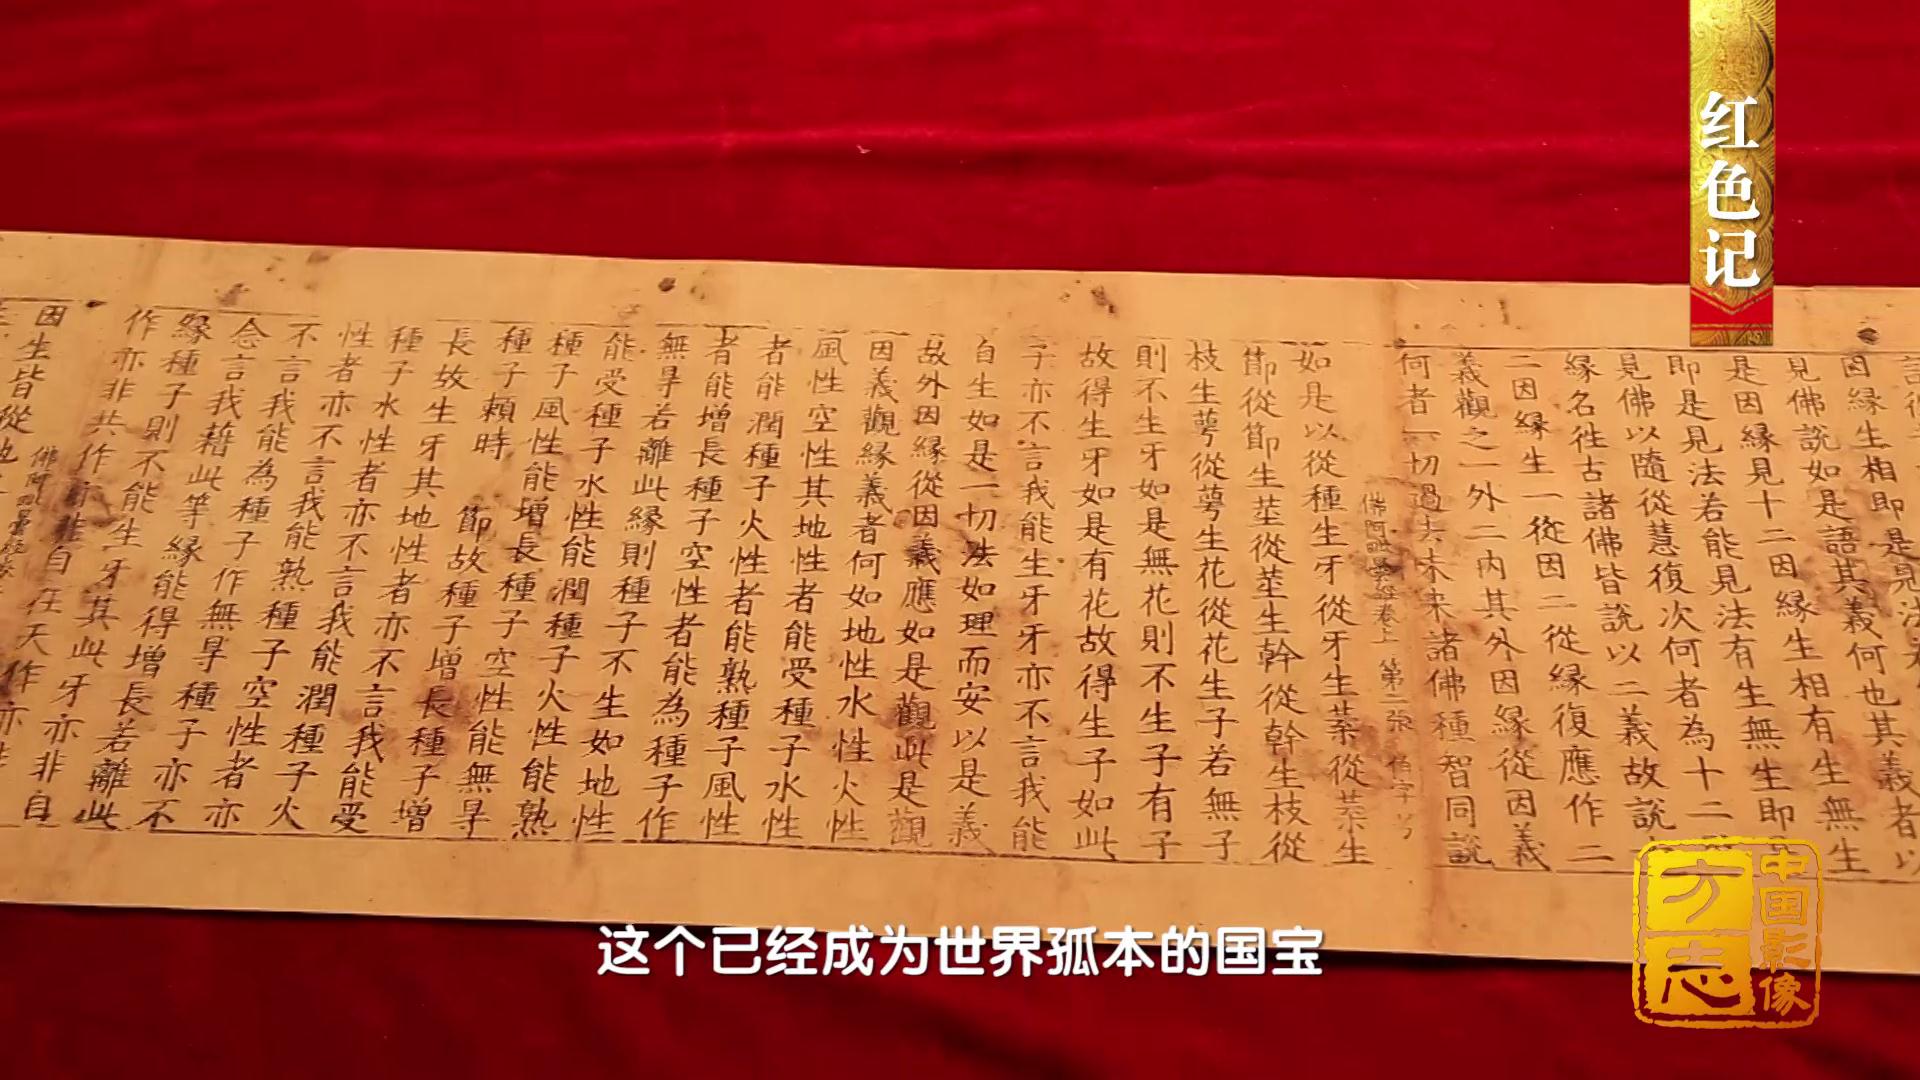 红色记
因緣生相即是見法
見佛說如是語其義何也其義者以
是因緣見十二因緣生相有生無生
即是見法若能見法有生無生即
見佛以隨從慧復次何者為十二
緣名徃古諸佛皆說以二義故說
二因緣生一從因二從緣復應作二
義觀之一外二内其外因緣從因義
何者一切過去未来諸佛種智同說
佛阿毗曇經卷上 第二張 伯字号
如是以從種生牙從牙生葉從葉生
節從節生莖從莖生幹從幹生枝從
枝生萼從萼生花從花生子若無子
則不生牙如是無花則不生子有子
故得生牙如是有花故得生子如此
子亦不言我能生牙牙亦不言我能
自生如是一切法如理而安以是義
故外因緣從因義應如是觀此是觀
因義觀緣義者何如地性水性火性
風性空性其地性者能受種子水性
者能潤種子火性者能熟種子風性
者能增長種子空性者能為種子作
無㝵若離此緣則種子不生如地性
能受種子水性能潤種子火性能熟
種子風性能增長種子空性能無㝵
種子頼時 節故種子增長種子增
長故生牙其地性者亦不言我能受
種子水性者亦不言我能潤種子火
性者亦不言我能熟種子空性者亦
不言我能為種子作無㝵種子亦不
念言我藉此等緣能得增長若離此
緣種子則不能生牙其此牙亦非自
作亦非共作亦非自在天作亦
因生皆從
这个已经成为世界孤本的国宝
中国影像
方志